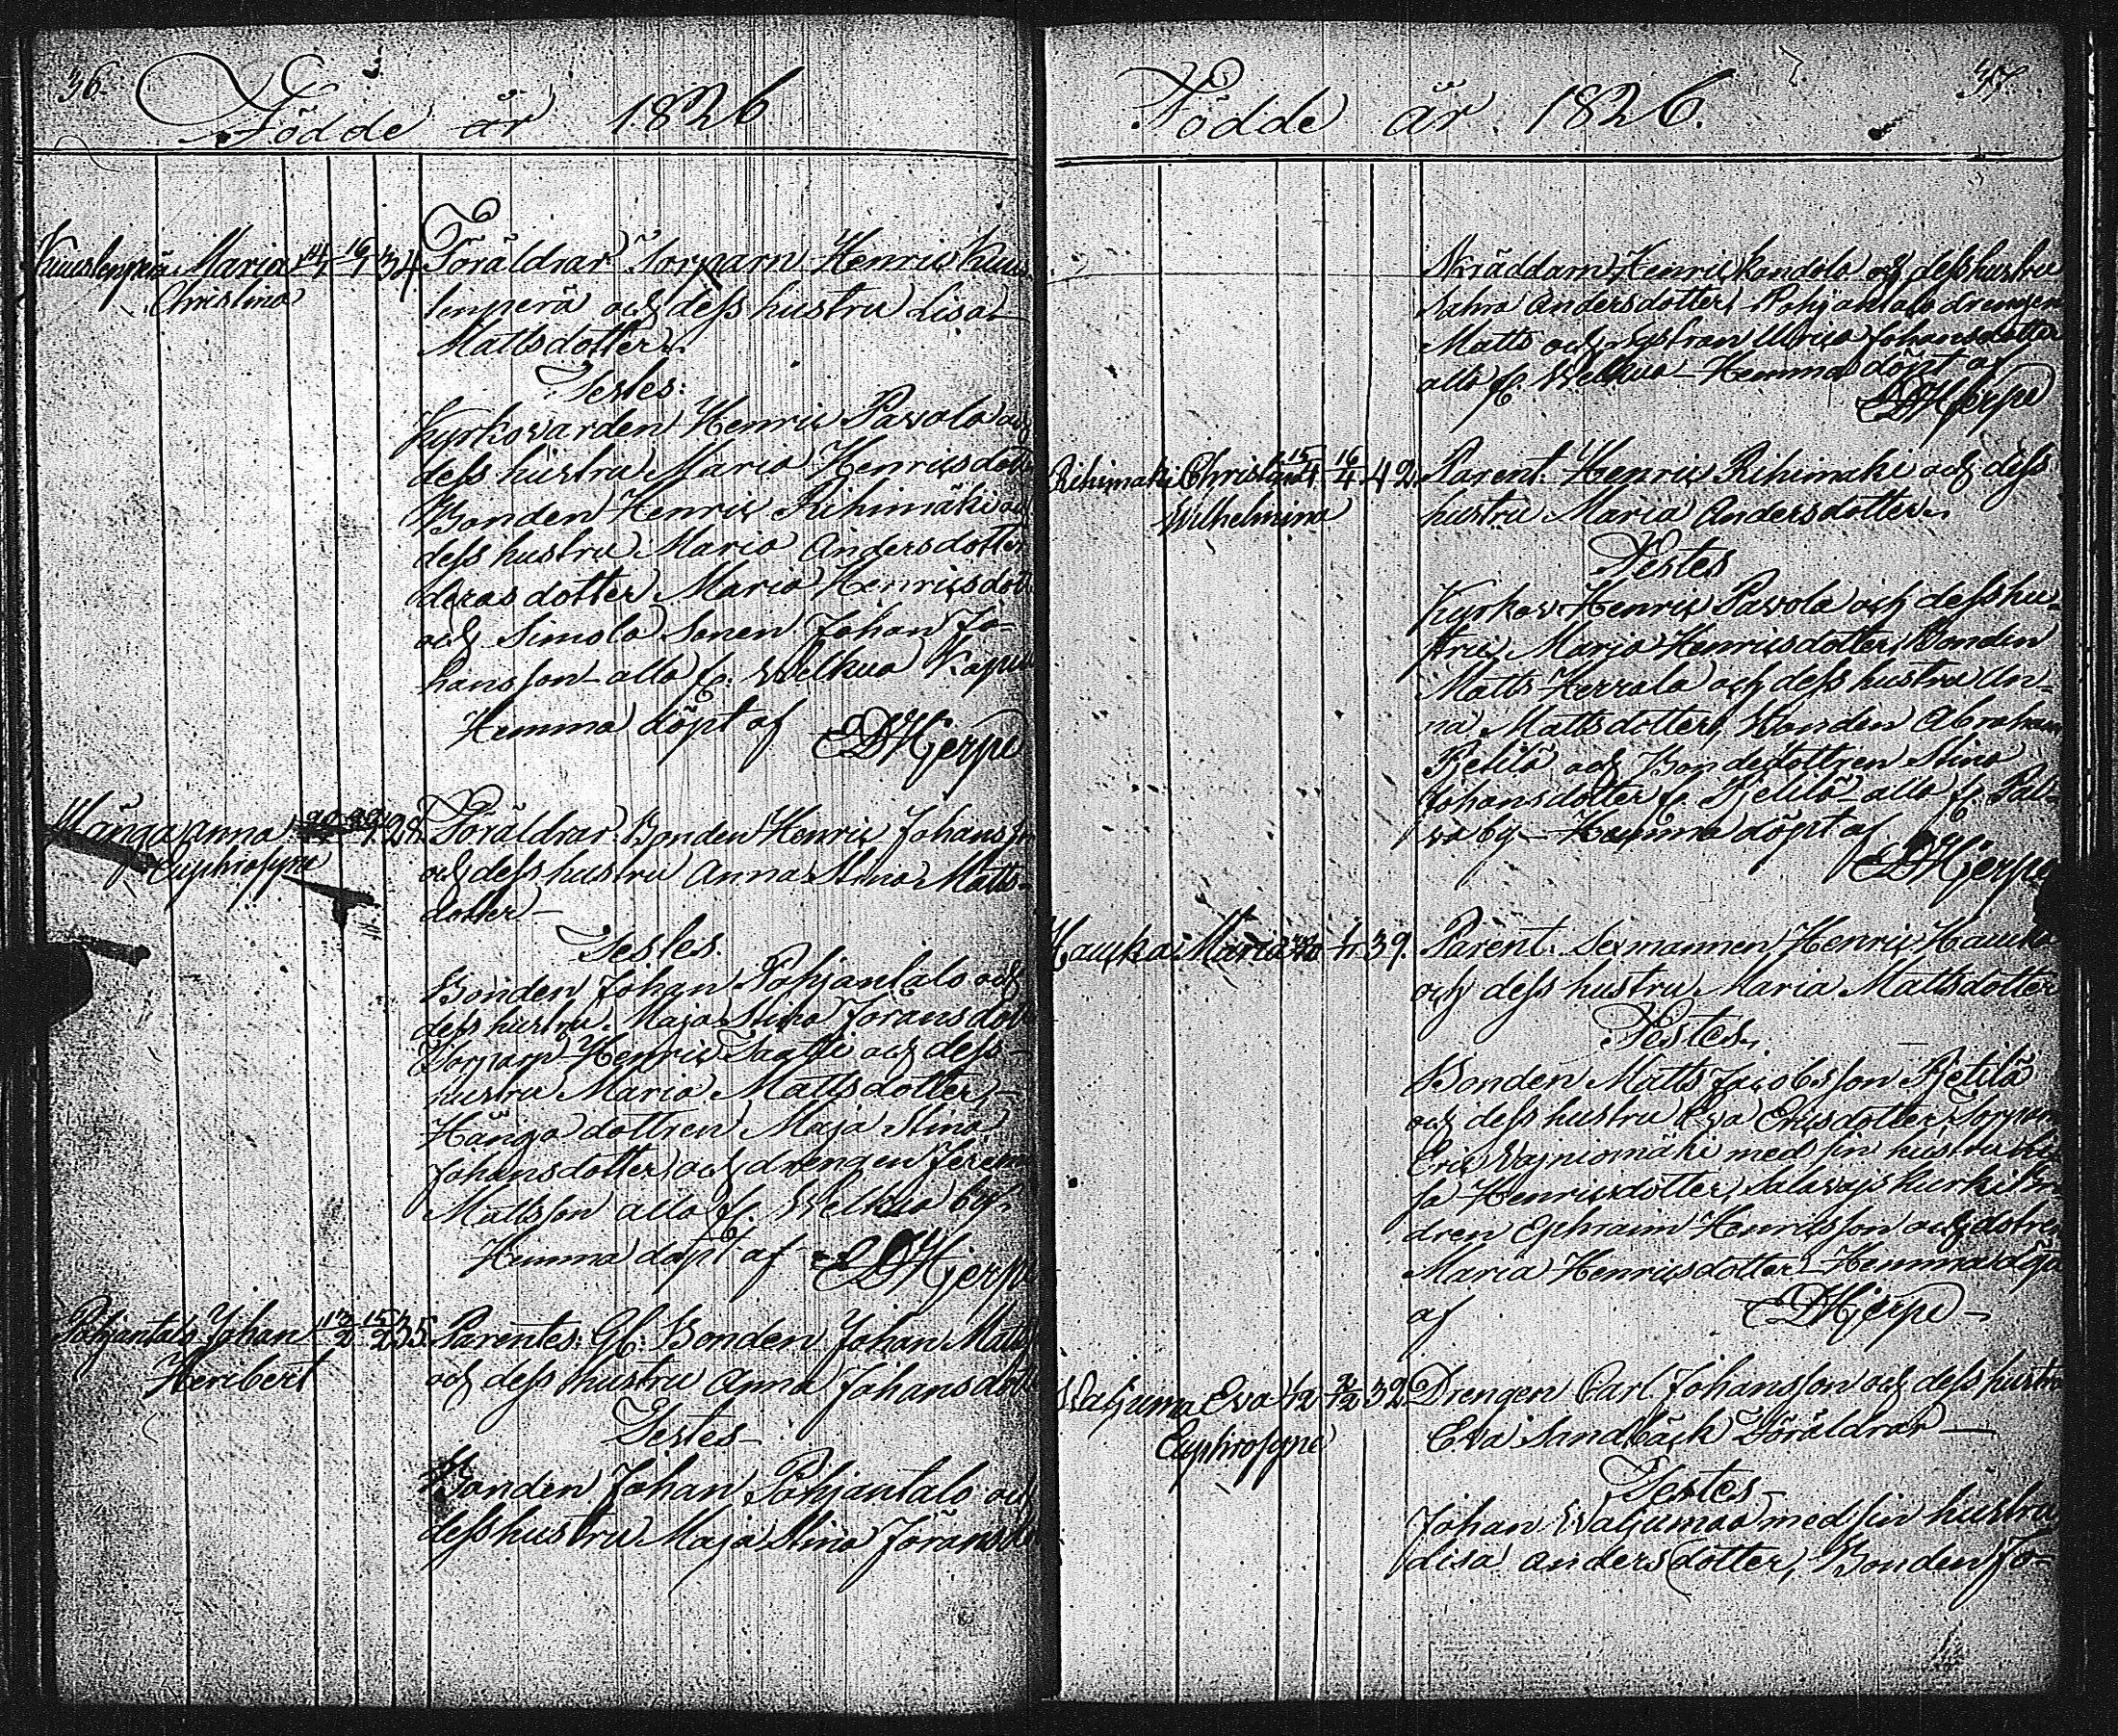 36.
Födde år 1826
Kuuslenperä Maria 14/1 16/1 34 Föräldrar Torparn Henric Kuus
Christina lenperä och dess hustru Lisa
Mattsdotter.
Testes:
Kyrkovärden Henric Pavola och
dess hustru Maria Henricsdott
Bonden Henric Rihimäki och
dess hustru Maria Andersdotter
deras dotter Maria Henricsdott
och Simola Sonen Johan Jo-
hansson alla fr. Welkua Kapell
Hemma döpt af EDHjerpe
Hånga Anna 28. Föräldrar. Bonden Henric Johansson
Euphrosyne och dess hustru Anna Stina Matts-
dotter
Testes.
Bonden Johan Pohjantalo och
dess hustru Maja Stina Göransdott
Torparn Henric Saatti och dess
hustru Maria Mattsdotter,
Hånga dottren Maja Stina
Johansdotter och drengen Jerem
Mattsson alla fr. Welkua by
Hemma döpt af EDHjerpe
Pohjantalo Johan 13/2 15/2 35. Parentes. Gl: Bonden Johan Matts
Heribert och dess hustru Anna Johansdott
Testes
Bonden Johan Pohjantalo och
dess hustru Maja Stina Göransdo
37.
Födde år 1826.
Skräddarn Henric Kandola och dess hustru
Sahra Andersdotter, Pohjantalo drengen
Matts och systran Ulrica Johansdotter
alla fr. Welkua Hemma döpt af
EDHjerpe
Rihimäki Christina 15/4 16/4 42. Parent. Henric Rihimäki och dess
Wilhelmina hustru Maria Andersdotter.
Testes
Kyrkov. Henric Pavola och dess hu-
stru Maria Henricsdotter, Bonden
Matts Herrala och dess hustru An-
na Mattsdotter, Bonden Abraham
Pjetilä och Bondedottren Stina
Johansdotter fr. Pjetilä alla fr. Pal-
va by Hemma döpt af
EDHjerpe
Hauska Maria 39. Parent: Sexmannen Henric Hauska
och dess hustru Maria Mattsdotter
Testes.
Bonden Matts Jacobsson Pjetilä
och dess hustru Eva Ericsdotter, Torparn
Eric Vajniomäki med sin hustru Li-
sa Henricsdotter, Salavajs Kurki Bn-
dren Ephraim Henricsson och dotren
Maria Henricsdotter Hemma döpt
af EDHjerpe
Waljuma Eva 1/12 3/12 32 Drengen Carl Johansson och dess hustru
Euphrosyne Eva Sandbäck Föräldrar
Testes
Johan Waljumaa med sin hustru
Lisa Andersdotter, Bonden Jo-